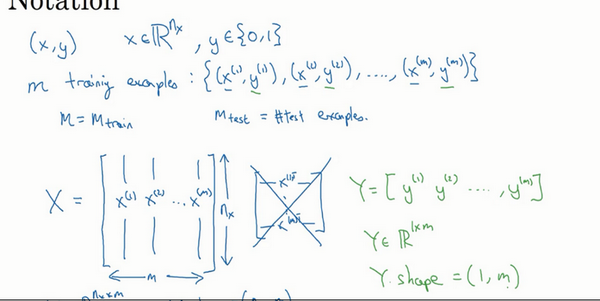 Notation
(x, y) x ∈ ℝ^{n_x}, y ∈ {0,1}
m training examples : {(x^{(1)}, y^{(1)}), (x^{(2)}, y^{(2)}), ...., (x^{(m)}, y^{(m)})}
M = M_{train} M_{test} = #test examples.
X = [ x^{(1)} x^{(2)} ... x^{(m)} ] n_x
m
x^{(1)T}
x^{(m)T}
Y = [ y^{(1)} y^{(2)} ...., y^{(m)} ]
Y ∈ ℝ^{1×m}
Y.shape = (1, m)
n_x × m